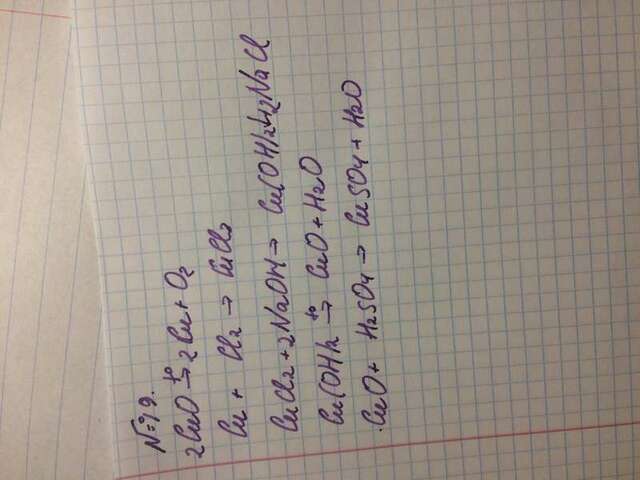 №19.
2CuO t°→ 2Cu + O2
Cu + Cl2 → CuCl2
CuCl2 + 2NaOH → Cu(OH)2↓+2NaCl
Cu(OH)2 t°→ CuO + H2O
CuO + H2SO4 → CuSO4 + H2O